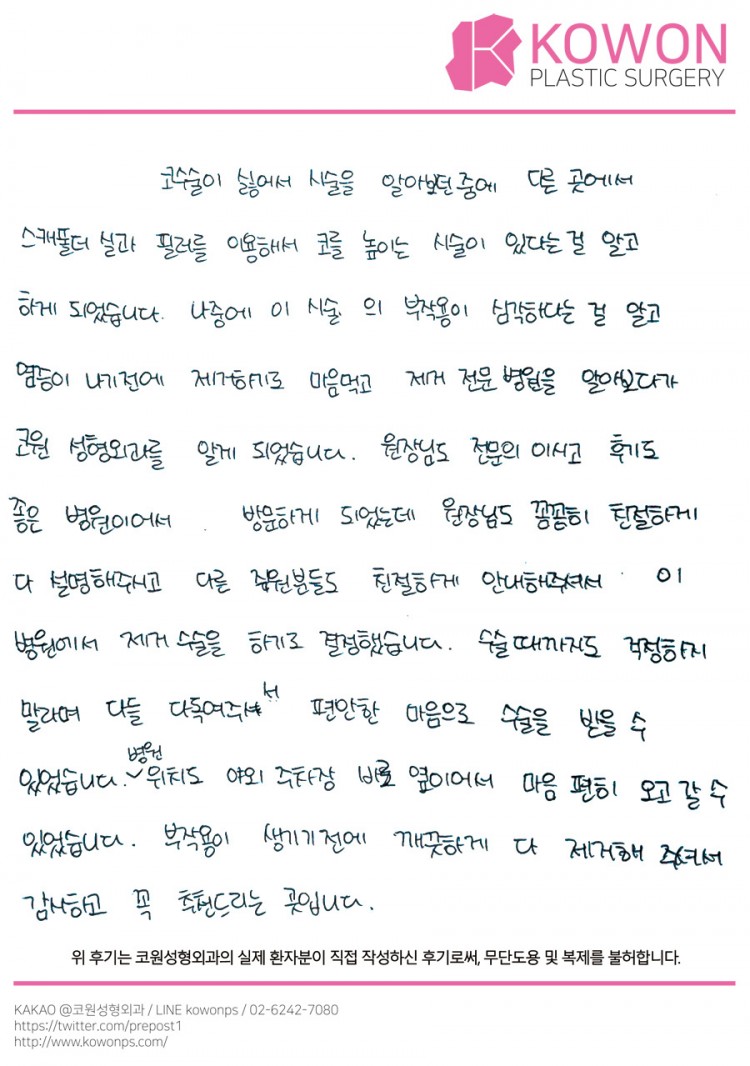 KOWON
PLASTIC SURGERY
코수술이 싫어서 시술을 알아보던 중에 다른 곳에서
스캐폴더 실과 필러를 이용해서 코를 높이는 시술이 있다는 걸 알고
하게 되었습니다. 나중에 이 시술 의 부작용이 심각하다는 걸 알고
염증이 나기전에 제거하기로 마음먹고 제거 전문 병원을 알아보다가
코원 성형외과를 알게 되었습니다. 원장님도 전문의 이시고 후기도
좋은 병원이어서 방문하게 되었는데 원장님도 꼼꼼히 친절하게
다 설명해주시고 다른 직원분들도 친절하게 안내해주셔서 이
병원에서 제거 수술을 하기로 결정했습니다. 수술때까지도 걱정하지
말라며 다들 다독여주셔서 편안한 마음으로 수술을 받을 수
있었습니다. 병원 위치도 야외 주차장 바로 옆이어서 마음 편히 오고 갈 수
있었습니다. 부작용이 생기기 전에 깨끗하게 다 제거해 주셔서
감사하고 꼭 추천드리는 곳입니다.
위 후기는 코원성형외과의 실제 환자분이 직접 작성하신 후기로써, 무단도용 및 복제를 불허합니다.
KAKAO @코원성형외과 / LINE kowonps / 02-6242-7080
https://twitter.com/prepost1
http://www.kowonps.com/